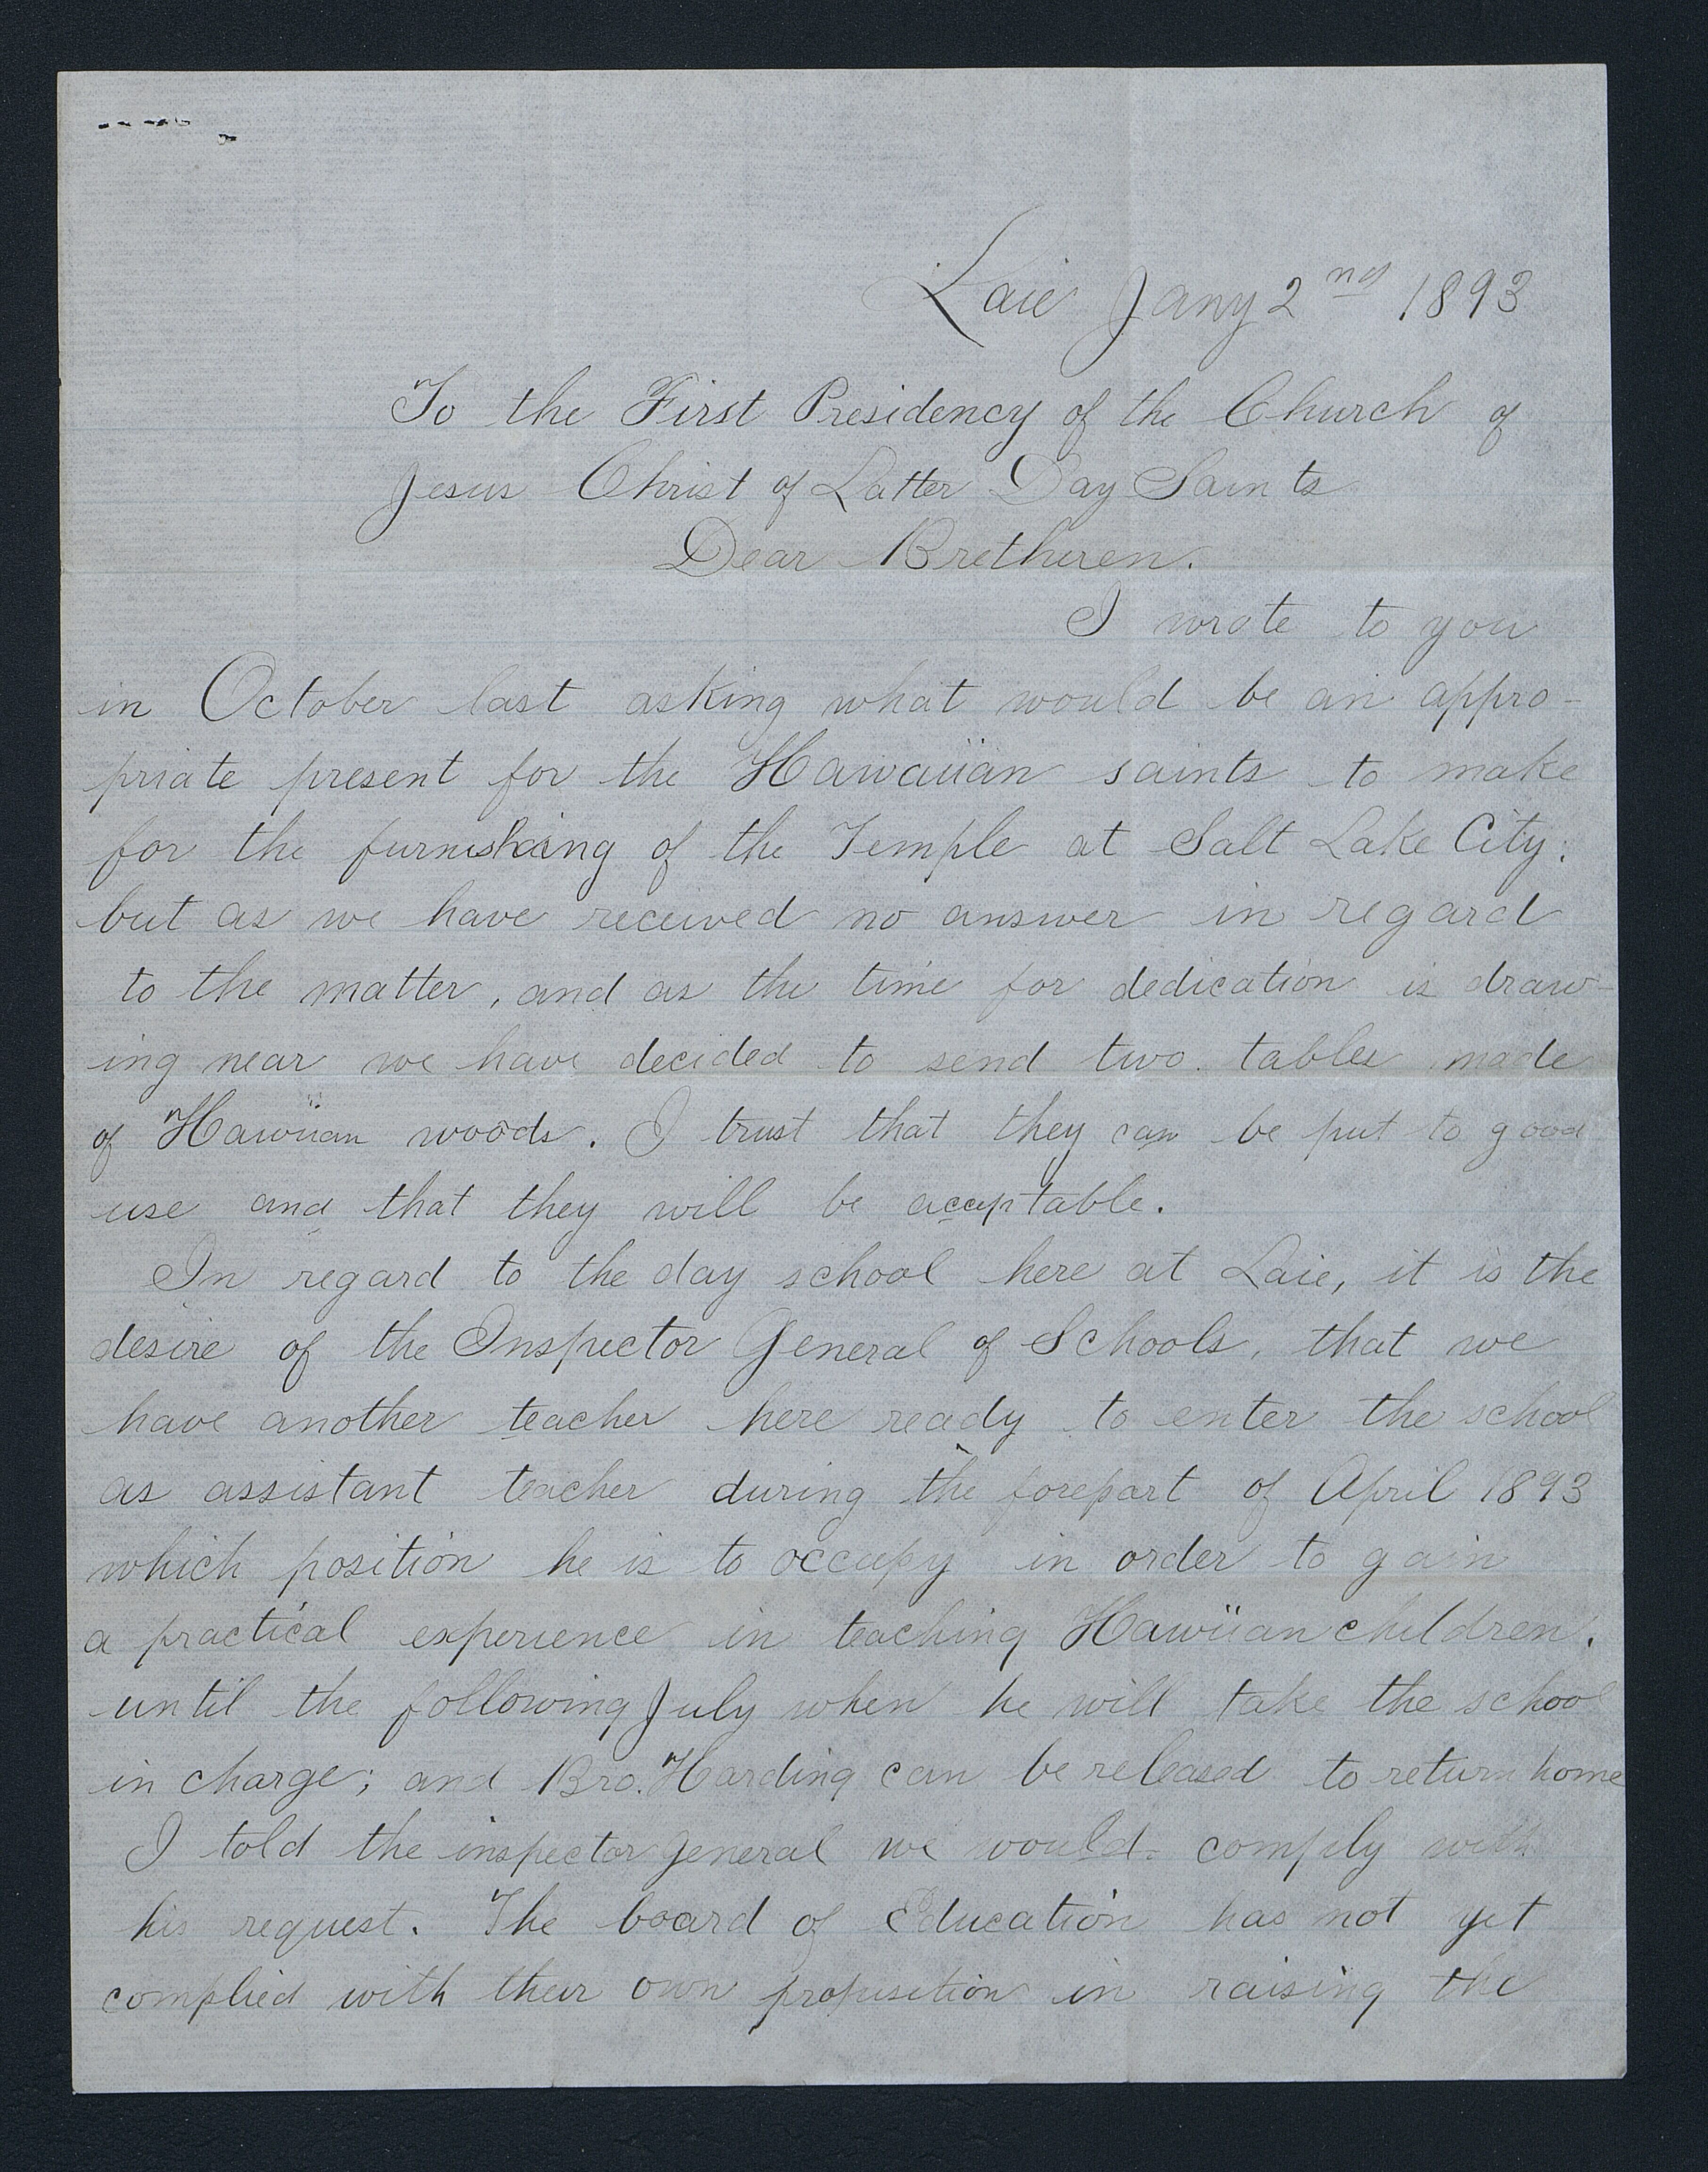 Laie Jany 2nd 1893
To the First Presidency of the Church of
Jesus Christ of Latter Day Saints
Dear Bretheren.
I wrote to you
in October last asking what would be an appro-
priate present for the Hawaiian saints to make
for the furnishing of the Temple at Salt Lake City;
but as we have received no answer in regard
to the matter, and as the time for dedication is draw-
ing near we have decided to send two tables made
of Hawiian woods. I trust that they can be put to good
use and that they will be acceptable.
In regard to the day school here at Laie, it is the
desire of the Inspector General of Schools, that we
have another teacher here ready to enter the school
as assistant teacher during the forepart of April 1893
which position he is to occupy in order to gain
a practical experience in teaching Hawiian children.
until the following July when he will take the school
in charge; and Bro. Harding can be released to return home
I told the inspector general we would comply with
his request. The board of Education has not yet
complied with their own proposition in raising the